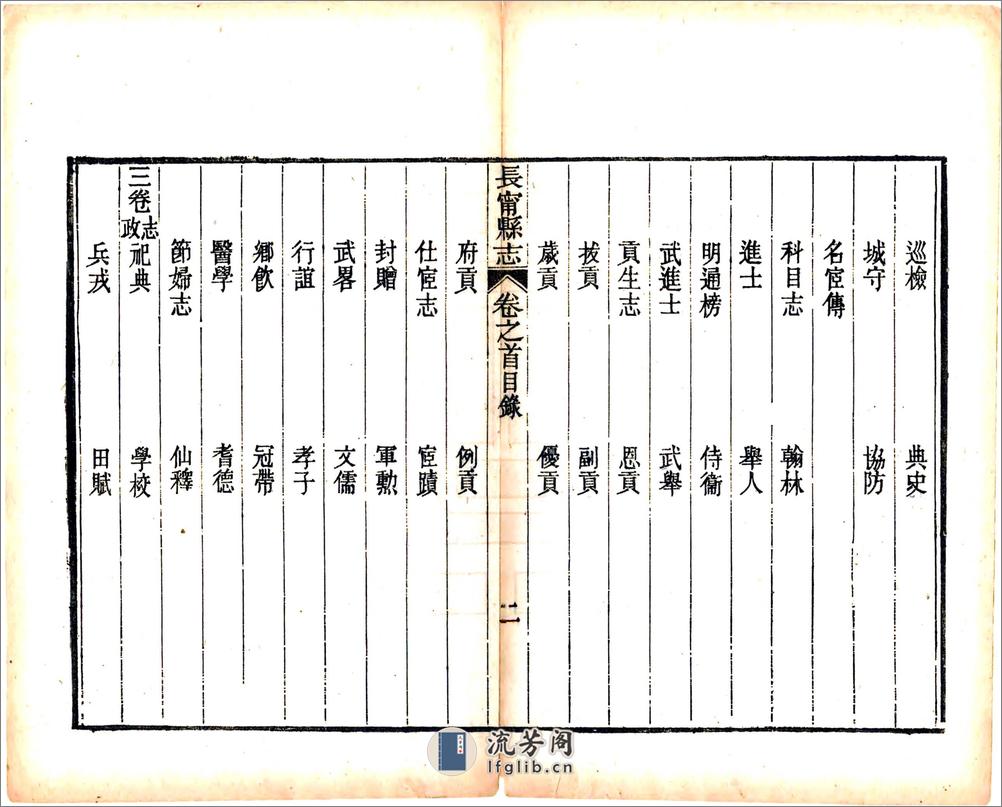 巡檢 典史
城守 協防
名宦傳
科目志 翰林
進士 舉人
明通榜 侍衞
武進士 武舉
貢生志 恩貢
拔貢 副貢
歲貢 優貢
長甯縣志 卷之首目錄 二
府貢 例貢
仕宦志 宦蹟
封贈 軍勲
武畧 文儒
行誼 孝子
鄉飲 冠帶
醫學 耆德
節婦志 仙釋
三卷 政志 祀典 學校
兵戎 田賦
流芳阁
lfglib.cn